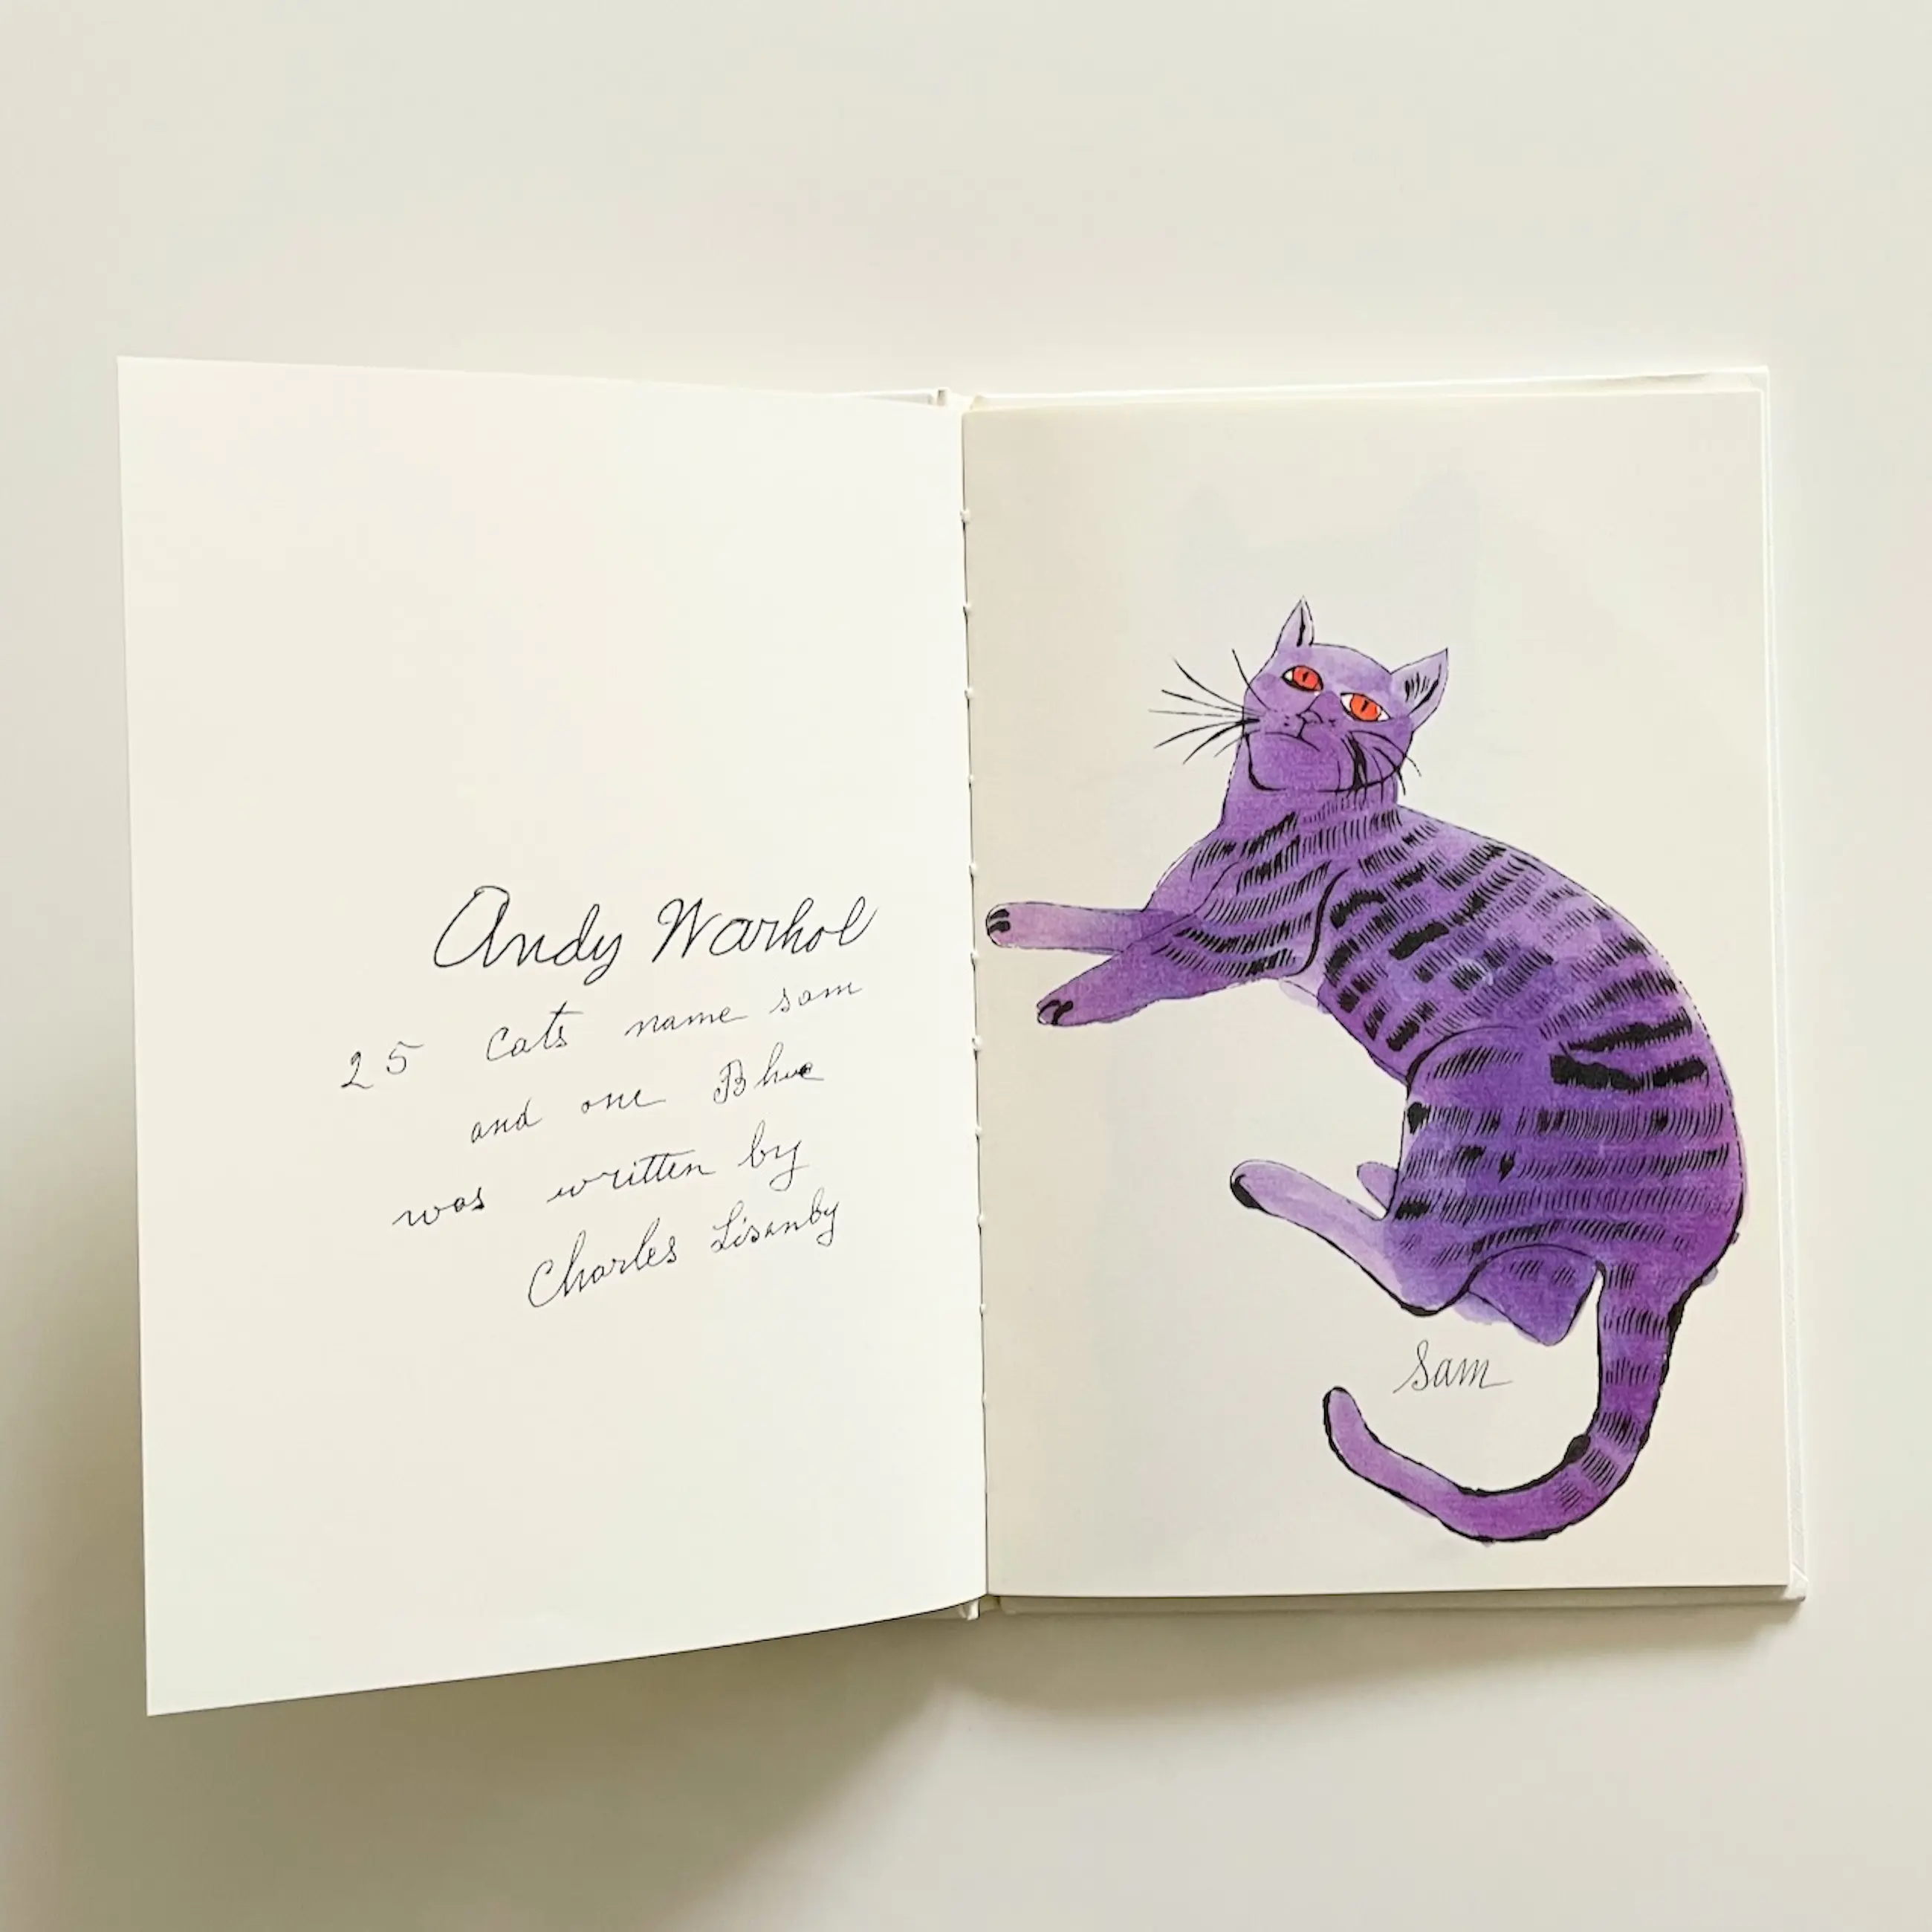 Andy Warhol
25 Cats name sam
and one Blue
was written by
Charles Lisanby
sam